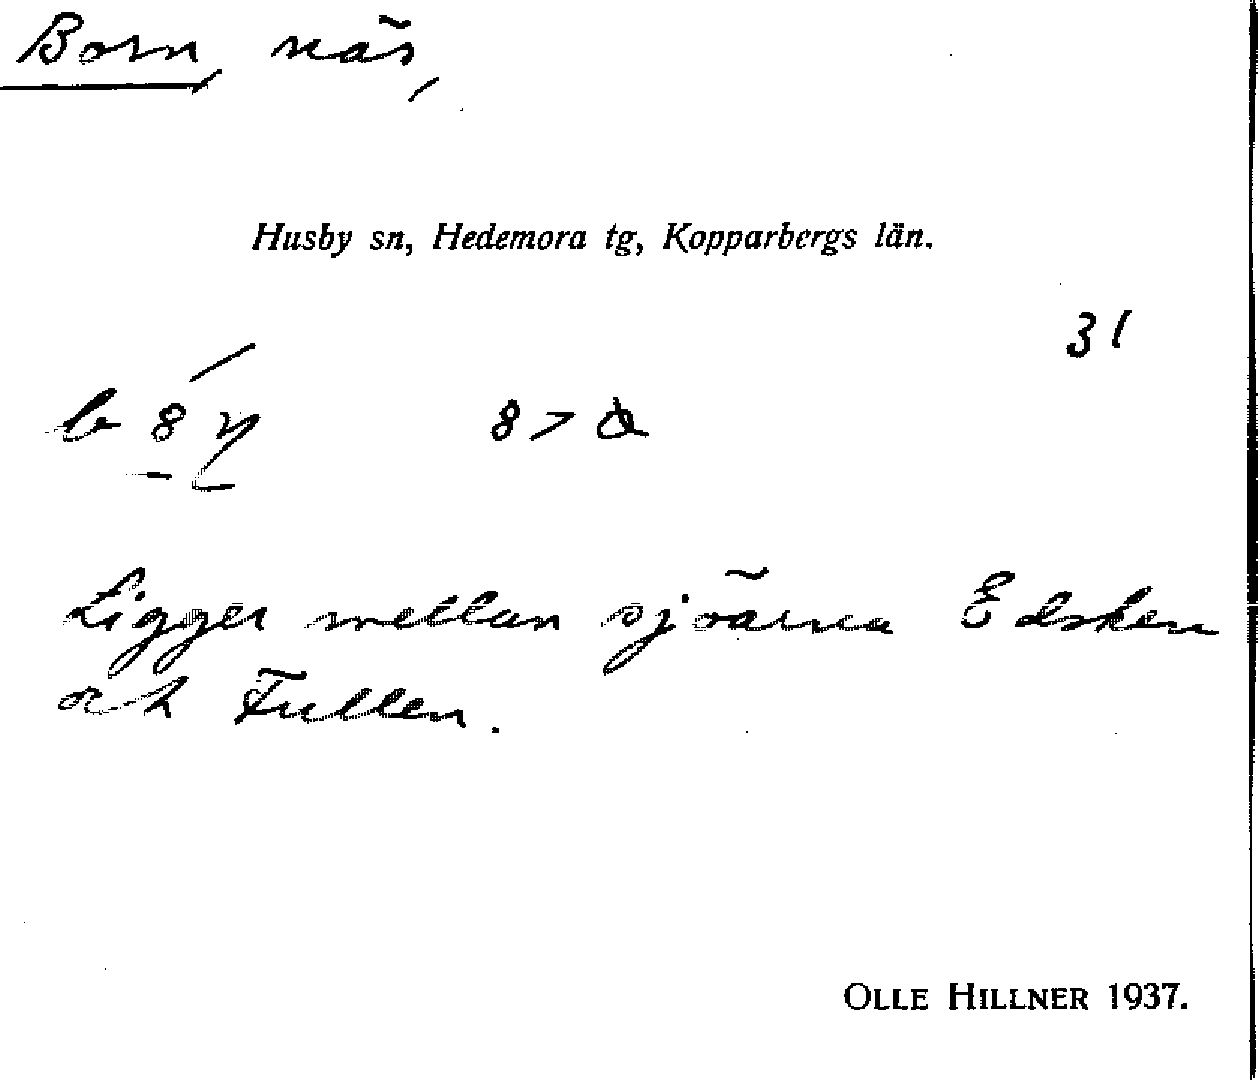 Born, näs,
Husby sn, Hedemora tg, Kopparbergs län.
31
8 >
Ligger mellan sjöarna Edsken
och Fullen.
OLLE HILLNER 1937.